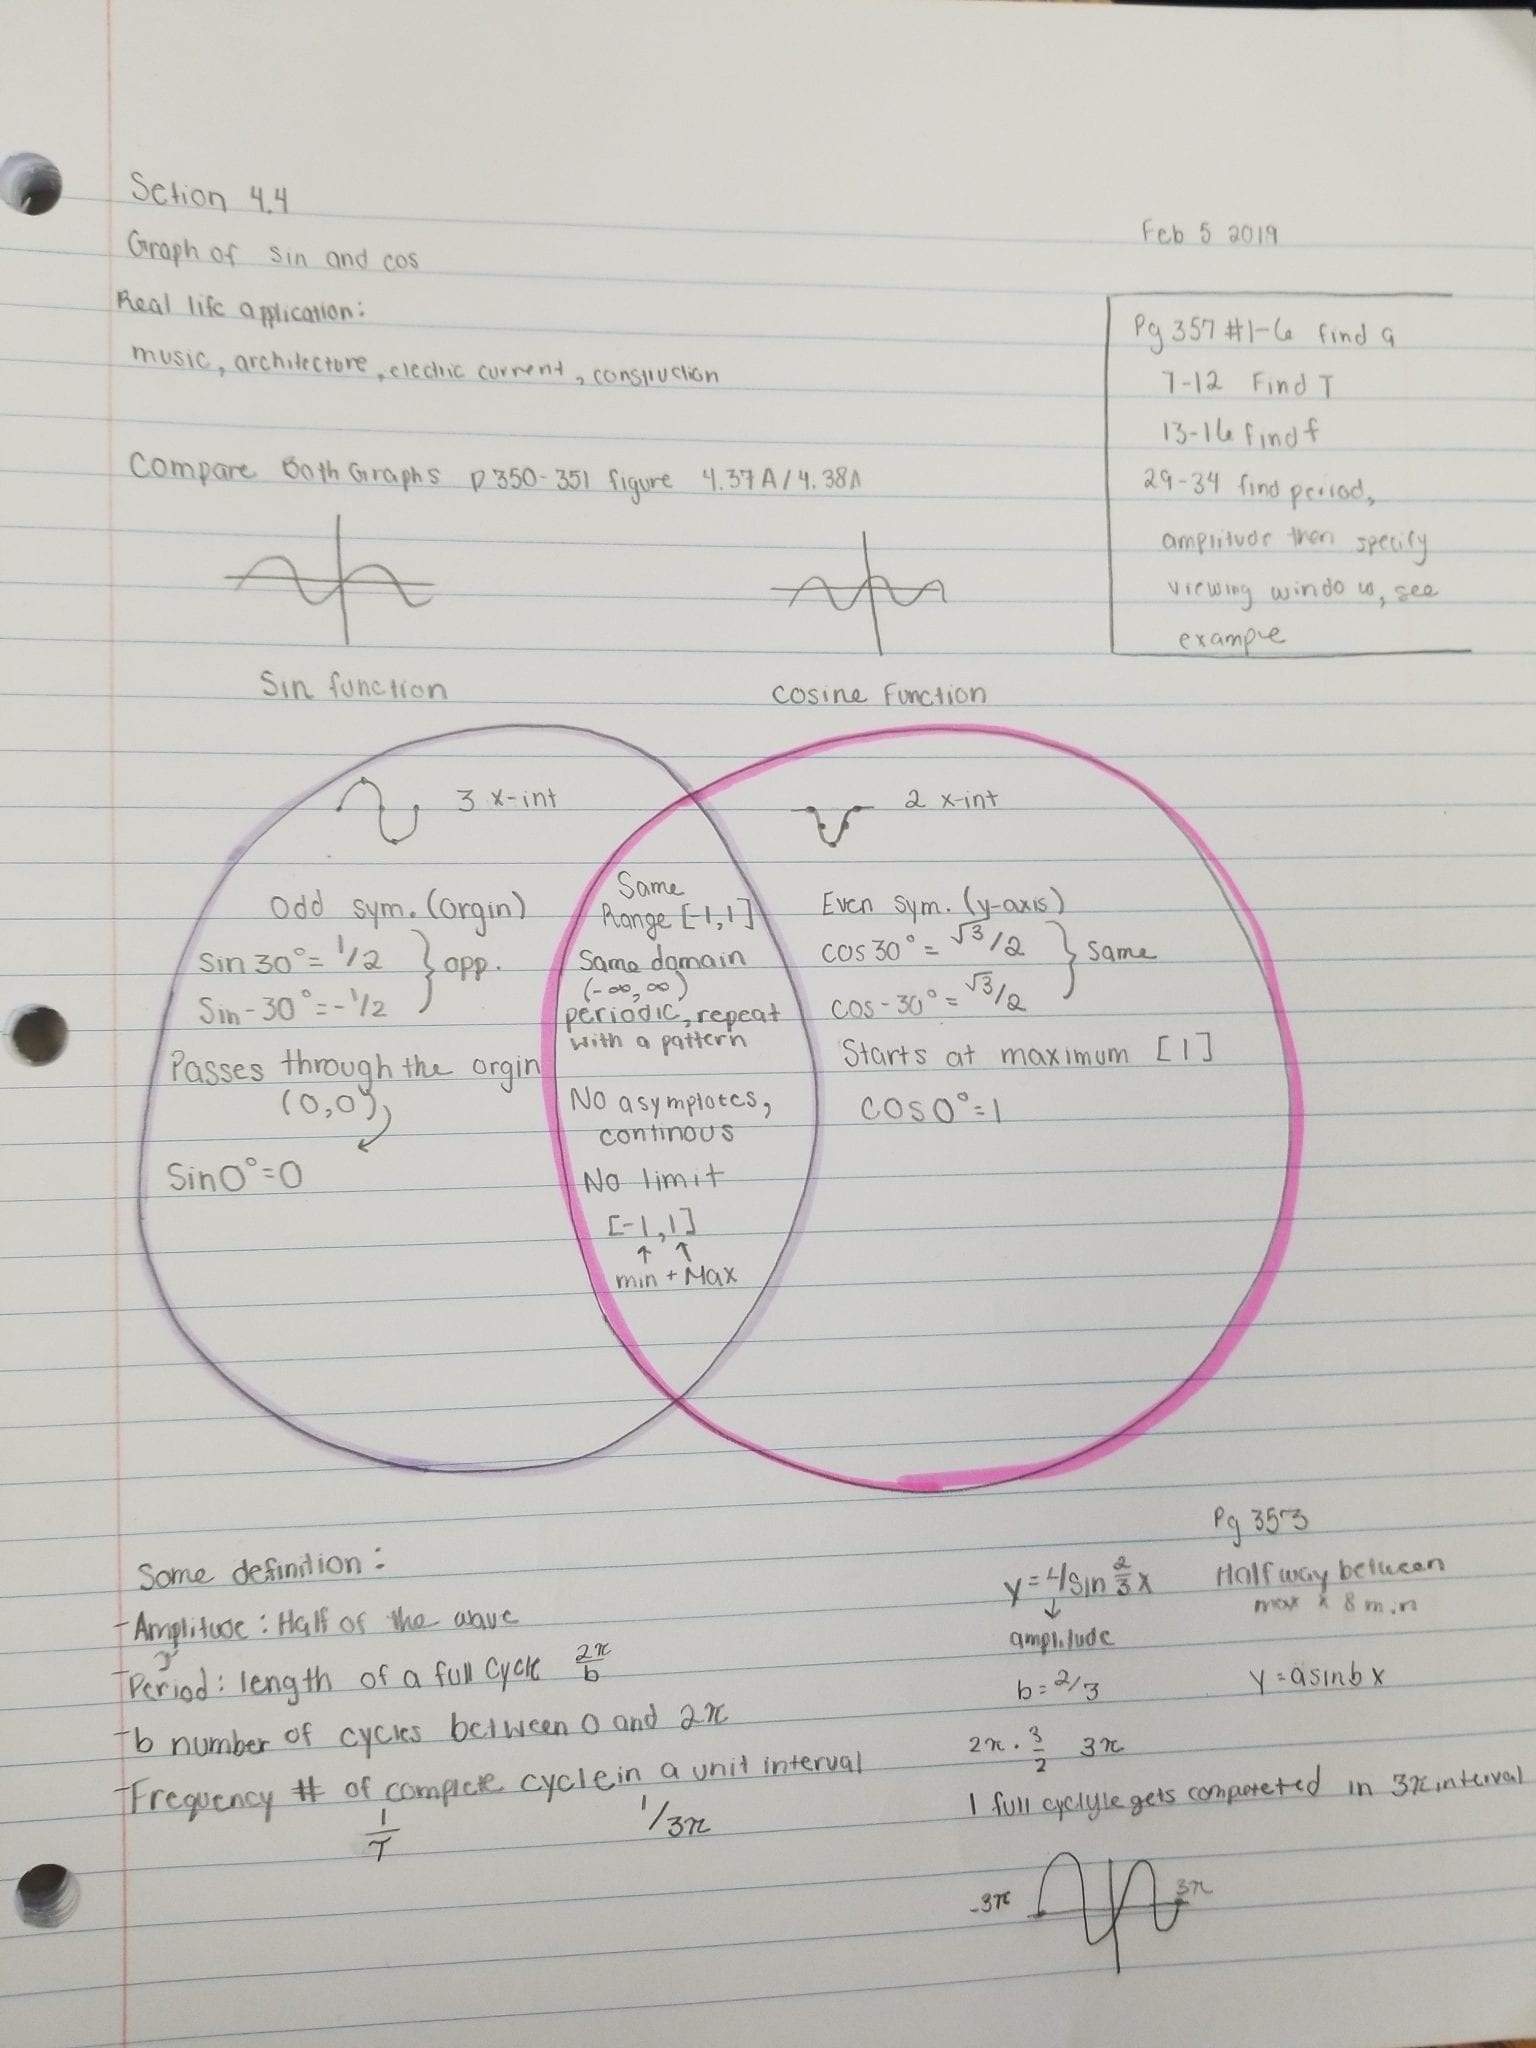 Setion 4.4
Graph of sin and cos
Feb 5 2019
Real life application:
music, architecture, electric current, construction
Pg 357 #1-6 find a
7-12 Find T
13-16 find f
29-34 find period,
amplitude then specify
viewing window, see
example
Compare Both Graphs p350-351 figure 4.37A/4.38A
Sin function
cosine Function
3 x-int
Odd sym. (orgin)
Sin 30° = 1/2
Sin -30° = -1/2
opp.
Passes through the orgin
(0,0)
Sin 0° = 0
Same
Range [-1,1]
Same domain
(-∞, ∞)
periodic, repeat
with a pattern
No asymplotes,
continous
No limit
[-1,1]
↑ ↑
min + Max
2 x-int
Even sym. (y-axis)
cos 30° = √3/2
cos -30° = √3/2
Same
Starts at maximum [1]
cos 0° = 1
Some definition:
-Amplitude: Half of the wave
-Period: length of a full cycle 2π/b
-b number of cycles between 0 and 2π
-Frequency # of complete cycle in a unit interval
1/T 1/3π
Pg 353
y = 4 sin 2/3 x
↓
amplitude
Half way between
max & min
b = 2/3
y = a sin b x
2π · 3/2 3π
1 full cyclyle gets compereted in 3π interval
-3π 3π